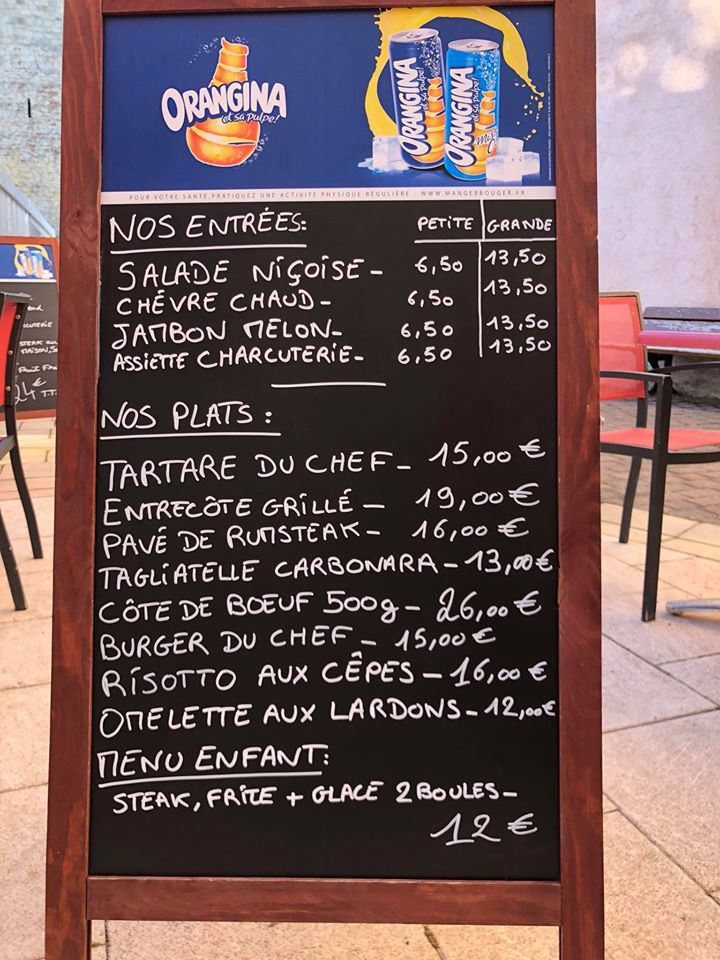 ORANGINA
et sa pulpe!
ORANGINA
et sa pulpe!
ORANGINA
et sa pulpe!
mix
POUR VOTRE SANTÉ, PRATIQUEZ UNE ACTIVITÉ PHYSIQUE RÉGULIÈRE - WWW.MANGERBOUGER.FR
NOS ENTRÉES: PETITE GRANDE
SALADE NIÇOISE - 6,50 13,50
CHÈVRE CHAUD - 6,50 13,50
JAMBON MELON - 6,50 13,50
ASSIETTE CHARCUTERIE - 6,50 13,50
NOS PLATS :
TARTARE DU CHEF - 15,00 €
ENTRECÔTE GRILLÉ - 19,00 €
PAVÉ DE RUMSTEAK - 16,00 €
TAGLIATELLE CARBONARA - 13,00 €
CÔTE DE BOEUF 500g - 26,00 €
BURGER DU CHEF - 15,00 €
RISOTTO AUX CÊPES - 16,00 €
OMELETTE AUX LARDONS - 12,00 €
MENU ENFANT:
STEAK, FRITE + GLACE 2 BOULES -
12 €
STEAK
24 €